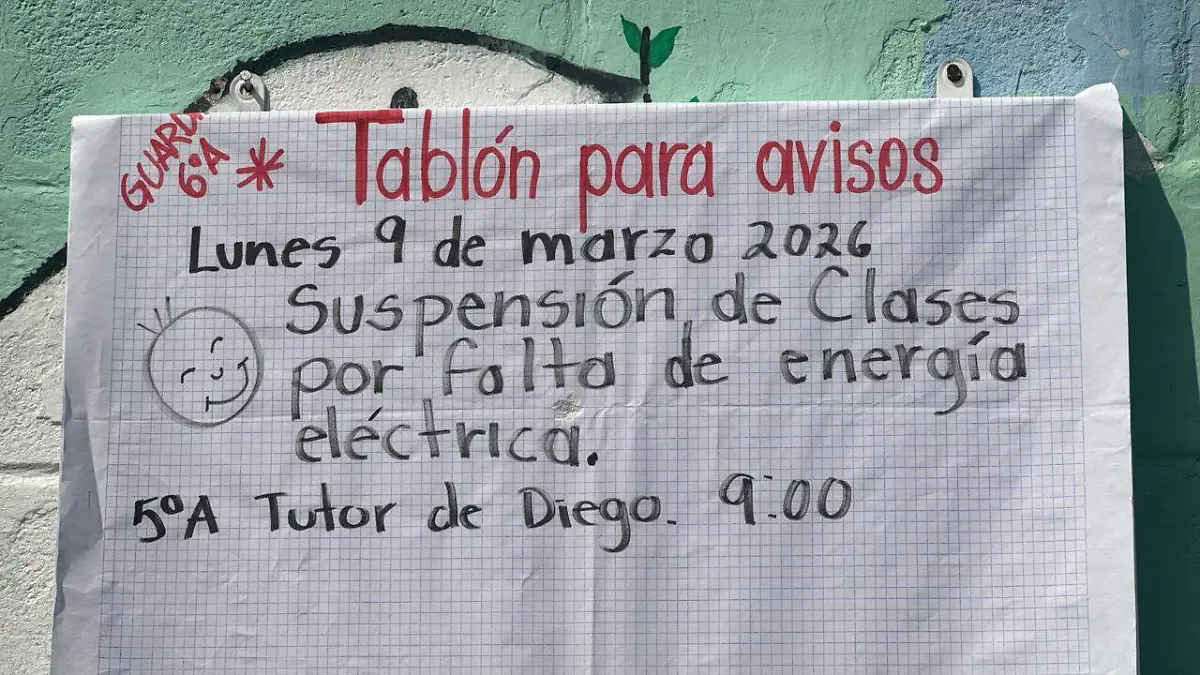 GUARDI
6°A * Tablón para avisos
Lunes 9 de marzo 2026
Suspensión de Clases
por falta de energía
eléctrica.
5ºA Tutor de Diego. 9:00